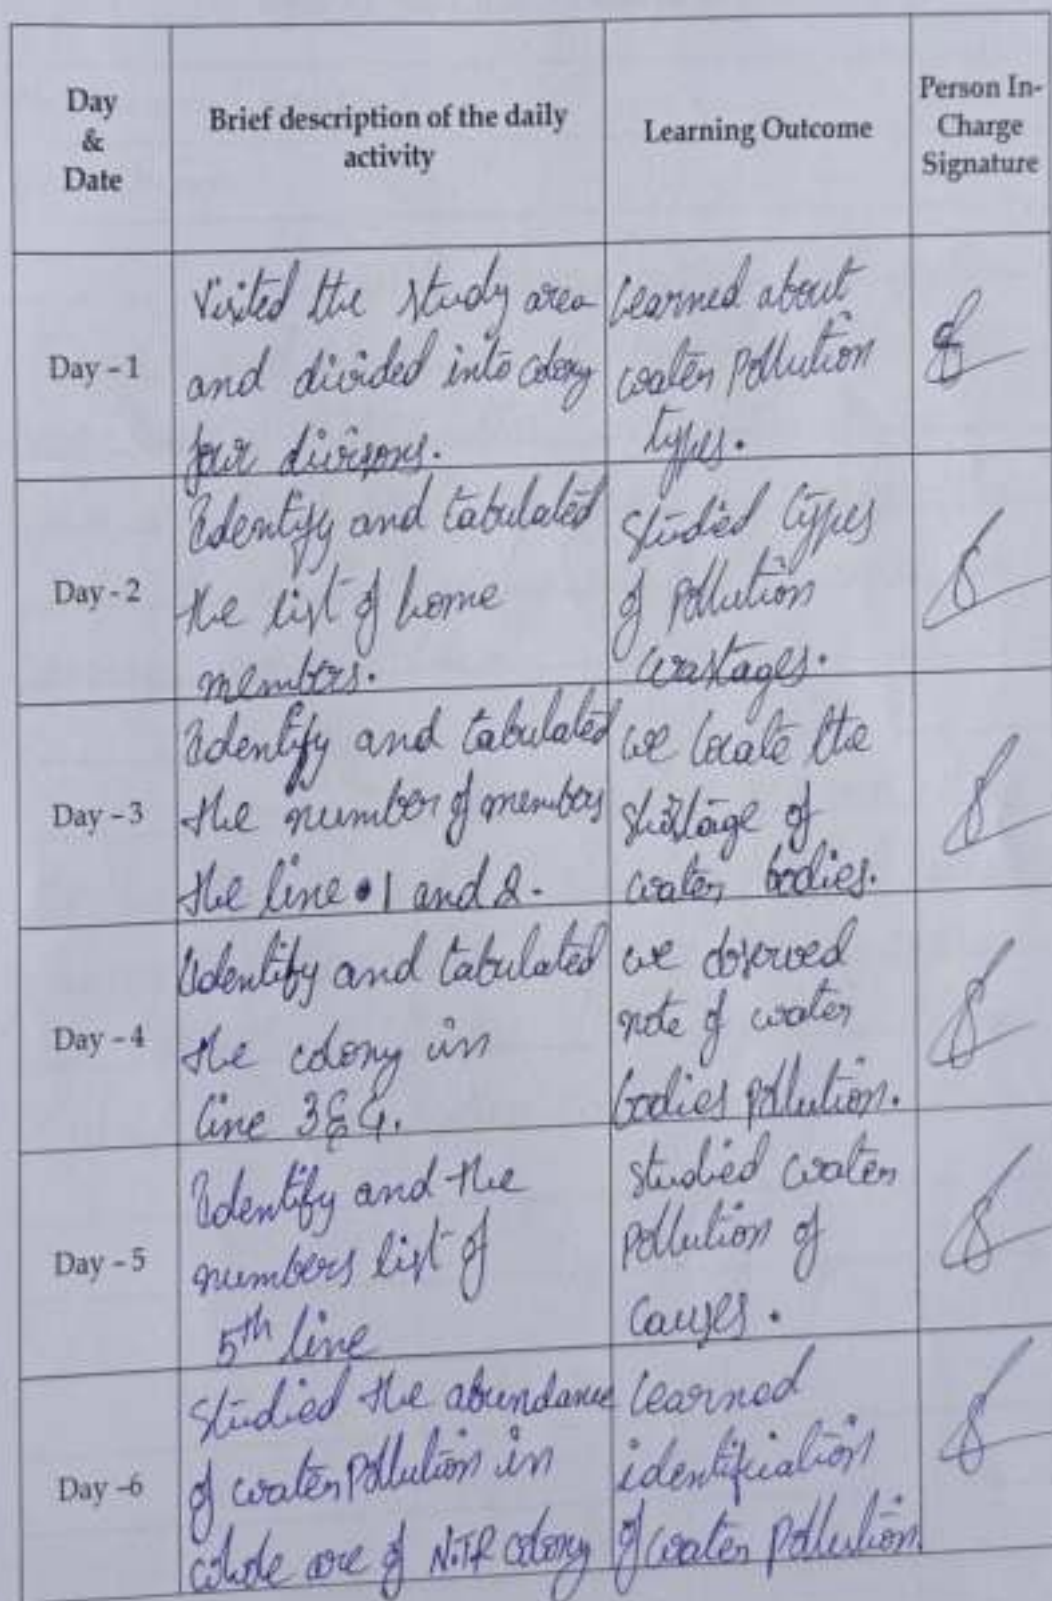 Day
&
Date
Brief description of the daily
activity
Learning Outcome
Person In-
Charge
Signature
Day - 1
Visited the study area
and divided into colony
four divisons.
Learned about
water pollution
types.
Day - 2
Identify and tabulated
the list of home
members.
Studied types
of pollution
wastages.
Day - 3
Identify and tabulated
the number of members
the line 1 and 2.
we locate the
shortage of
water bodies.
Day - 4
Identify and tabulated
the colony in
line 3 & 4.
we observed
note of water
bodies pollution.
Day - 5
Identify and the
numbers list of
5th line
studied water
pollution of
causes.
Day -6
Studied the abundance
of water pollution in
whole are of N.T.R colony
learned
identification
of water pollution